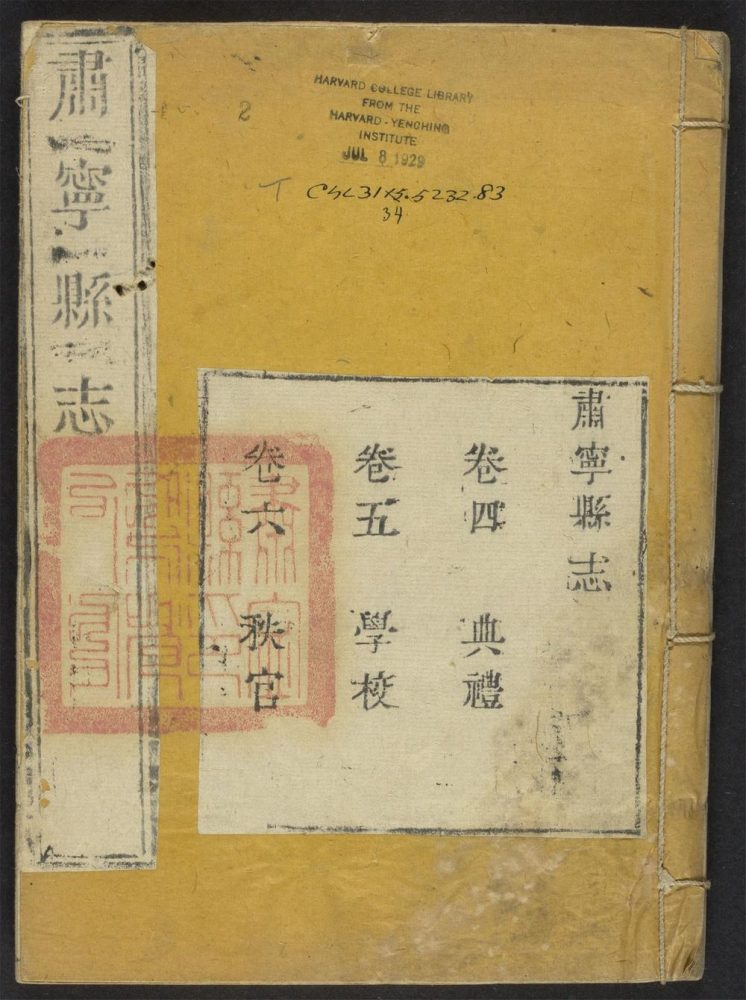 肅寧縣志
2
HARVARD COLLEGE LIBRARY
FROM THE
HARVARD-YENCHING
INSTITUTE
JUL 8 1929
T
34
肅寧縣志
卷四 典禮
卷五 學校
卷六 秩官